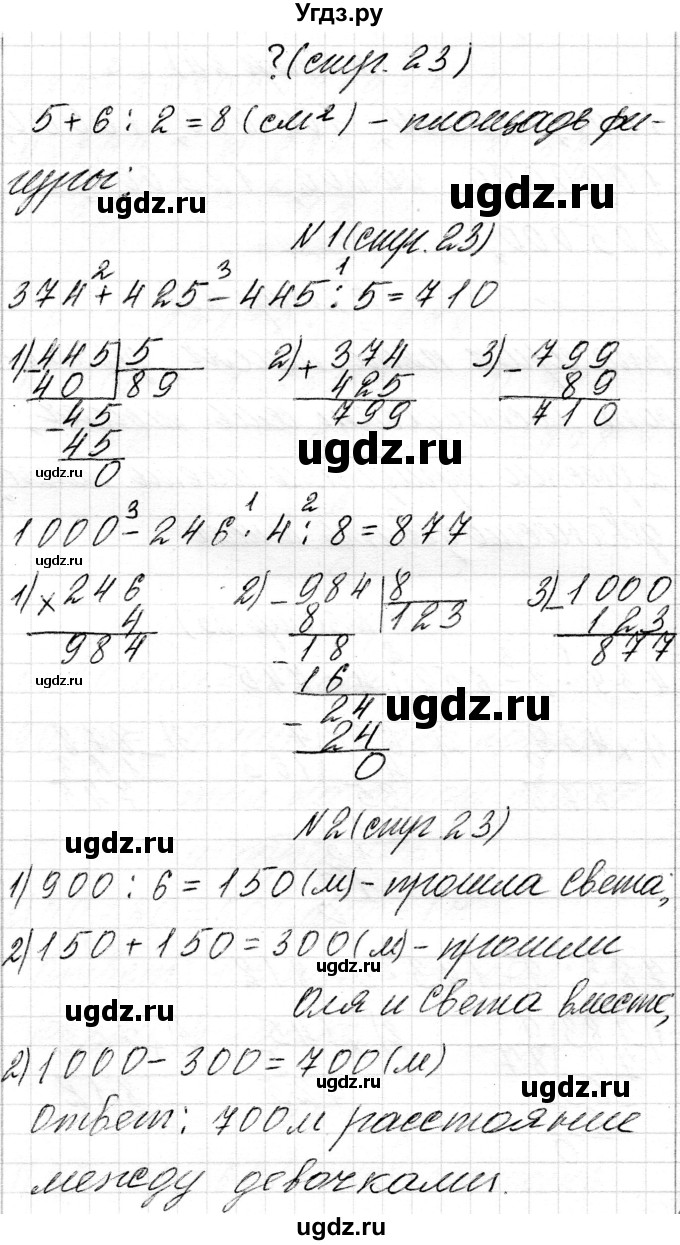 Угдз.ру
?(стр. 23)
5 + 6 : 2 = 8 (см²) – площадь фи-
гуры.
ugdz.ru
ugdz.ru
N 1 (стр. 23)
2 3 1
374 + 425 – 445 : 5 = 710
1) – 445 | 5 2) + 374 3) – 799
40 | 89 425 89
– 45 799 710
45
0
ugdz.ru
ugdz.ru
3 1 2
1000 – 246 · 4 : 8 = 877
ugdz.ru
1) × 246 2) – 984 | 8 3) – 1000
4 8 | 123 123
984 – 18 877
16
– 24
24
0
ugdz.ru
ugdz.ru
N 2 (стр 23)
ugdz.ru
1) 900 : 6 = 150 (м) – прошла Света;
2) 150 + 150 = 300 (м) – прошли
ugdz.ru
Оля и Света вместе;
ugdz.ru
2) 1000 – 300 = 700 (м)
ugdz.ru
Ответ: 700 м расстояние
между девочками.
ugdz.ru